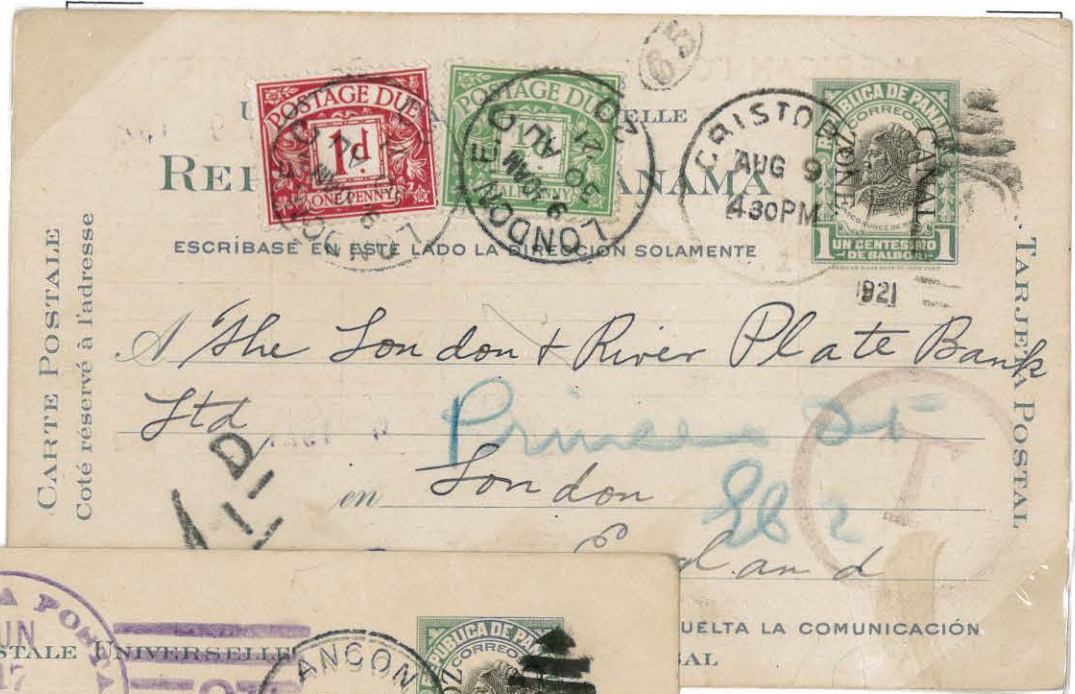 65
POSTAGE DUE
1d
ONE PENNY
POSTAGE DUE
HALFPENNY
LONDON
30 AU 21
CRISTO
AUG 9
430PM
1921
REPÚBLICA DE PAN
CORREOS
CANAL
ZONE.
1 UN CENTESIMO 1
DE BALBOA
ELLE
REP
ANAMÁ
ESCRÍBASE EN ESTE LADO LA DIRECCIÓN SOLAMENTE
CARTE POSTALE
Coté réservé à l'adresse
TARJETA POSTAL
A The London & River Plate Bank
Ltd
Princes St
en London
EC 2
England
T
UELTA LA COMUNICACIÓN
SAL
STALE UNIVERSELLE
UN
17
ANCON
PUBLICA DE PAN
CORREOS